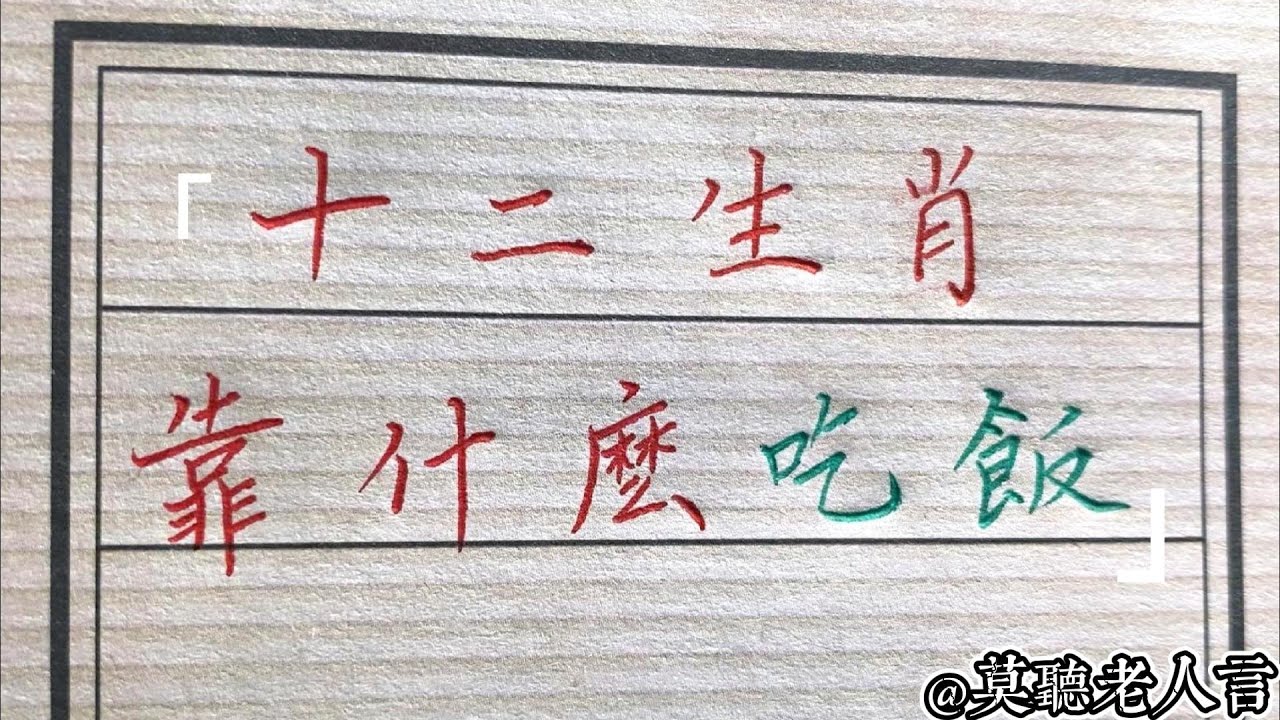 「十二生肖
靠什麼吃飯」
@莫聽老人言